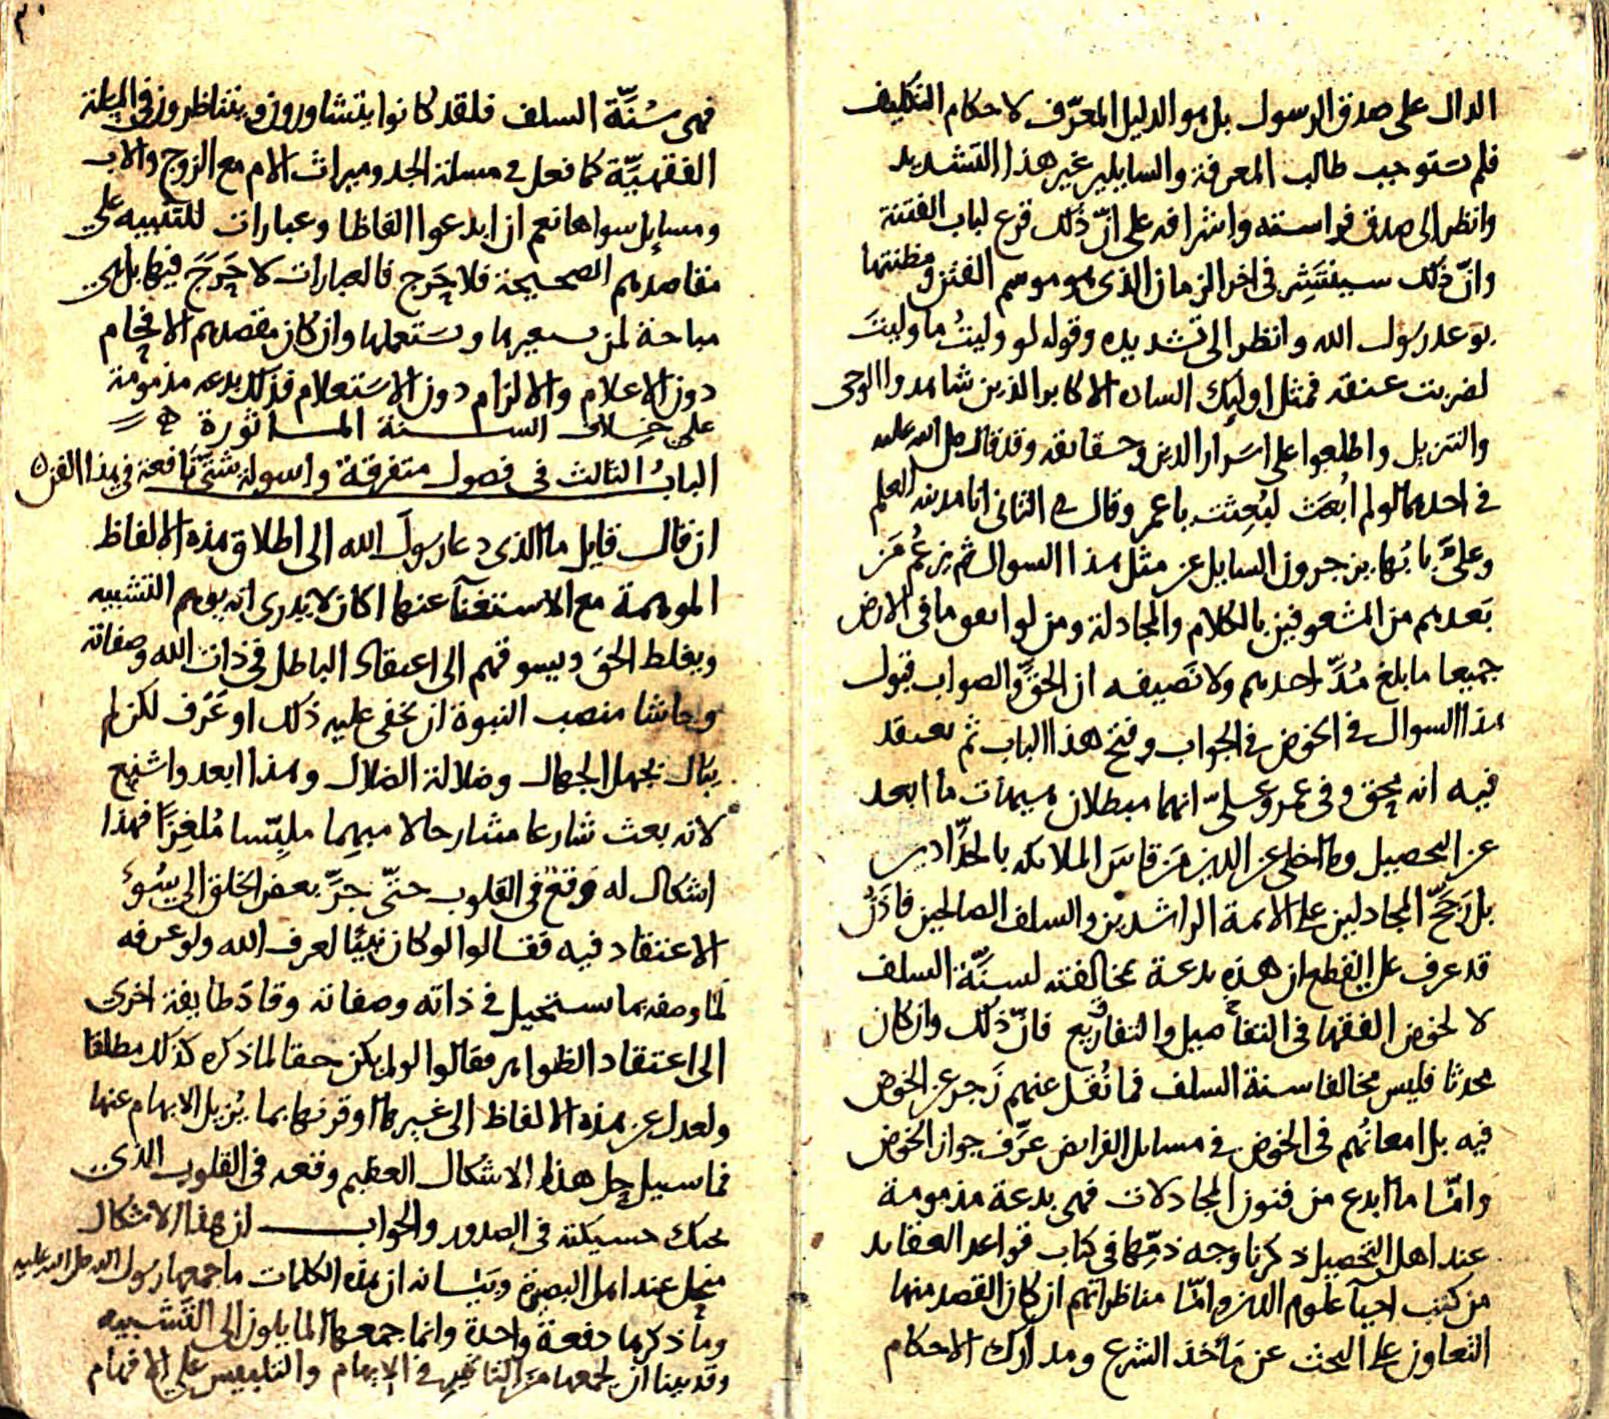 الدال على صدق الرسول بل هو الدليل المعرّف لاحكام التكليف
فلم تستوجب طالب المعرفة والسايلين غير هذا التشديد
وانظر الى صدق فراسته واشرافه على انّ ذلك قرع لباب الفتنة
وانّ ذلك سينتشر فى اخر الزمان الذى هو موسم الفتن ومظنتها
بوعد رسول الله وانظر الى تشديده وقوله لو وليتُ ما وليتَ
لضربت عنقه فمثل اوليك الساده الاكابر الذين شاهدوا الوحى
والتنزيل واطلعوا على اسرار الدين وحقايقه وقد قال صلى الله عليه
فى احدهما لو لم ابُعَث لبُعِثت يا عمر وقال فى الثانى انا مدينة العلم
وعلىّ بابها يزجرون السايل عن مثل هذا السوال ثم يزعُم مَن
بَعدهم من المشعوفين بالكلام والمجادلة ومن لو انفق ما فى الارض
جميعا ما بلغ مُدَّ احدهم ولا نَصيفه ان الحقّ والصواب قبول
هذا السوال فى الخوض فى الجواب وفتح هذا الباب ثم يعتقد
فيه انه محق وفى عمر وعلىّ انهما مبطلان هيهات ما ابعد
عن التحصيل وما اخلى عن الدين مَن قاسَ الملائكه بالحدّادين
بل رَجّحَ المجادلين على الائمة الراشدين والسلف الصالحين فاذَنْ
قد عرف على القطع ان هذه بدعة مخالفته لسنّة السلف
لا كخوض الفقها فى التفاصيل والتفاريع فانّ ذلك وان كان
محدثا فليس مخالفا سنة السلف فما نُقل عنهم زَجر عن الخوض
فيه بل امعانُهم فى الخوض فى مسايل الفرايض عرّف جواز الخوض
وامّا ما ابدع من فنون المجادلات فهى بدعة مذمومة
عند اهل التحصيل ذكرنا وجه ذمّها فى كتاب قواعد العقايد
من كتب احيآ علوم الدين وامّا مناظراتهم ان كان القصد منها
التعاون على البحث عن مأخذ الشرع ومدارك الاحكام
٣٠
فهى سُنّة السلف فلقد كانوا يتشاورون ويتناظرون فى المسئلة
الفقهيّة كما فعل فى مسئلة الجد وميراث الام مع الزوج والاب
ومسايل سواها نعم ان ابدعوا الفاظا وعبارات للتنبيه على
مقاصدهم الصحيحة فلا حَرج فالعبارات لا حَرَجَ فيها بل هى
مباحة لمن يستعيرها ويستعملها وان كان مقصدهم الافحام
دون الاعلام والالزام دون الاستعلام فذلك بدعه مذمومة
على خلاف السنة الماثورة
الباب الثالث فى فصول متفرقة واسولة شتّى نافعة فى هذا الفن
ان قال قايل ما الذى دعا رسولَ الله الى اطلاق هذه الالفاظ
الموهمة مع الاستغنآ عنها اكان لا يدرى انه يوهم التشبيه
ويغلط الحق ويسوقهم الى اعتقاد الباطل فى ذات الله وصفاته
وحاشا منصب النبوة ان يخفى عليه ذلك او عَرف لكن لم
يبال بجهل الجهال وضلالة الضلال وهذا ابعد واشنع
لانه بعث شارعا مشارحا لا مبهما ملبّسا مُلغِزًا فهذا
اشكال له وقع فى القلوب حتّى جرّ بعض الخلق الى سُوءِ
الاعتقاد فيه فقالوا لو كان نبيًّا لعرف الله ولو عرفه
لما وصفه بما يستحيل فى ذاته وصفاته وقادَ طايفة اخرى
الى اعتقاد الظواهر فقالوا لو لم يكن حقا لما ذكره كذلك مطلقا
ولعدل عن هذه الالفاظ الى غيرها او قرنها بما يُزيل الابهام عنها
فما سبيل حل هذا الاشكال العظيم وقعه فى القلوب الذى
تحك حسيكته فى الصدور والجواب ان هذا الاشكال
منحل عند اهل البصيرة وبيانه ان هذه الكلمات ما جمعها رسول الله صلى الله عليه
وما ذكرها دفعة واحدة وانما جمعها المايلون الى التشبيه
وقد بينا ان لجمعها من التاثير فى الايهام والتلبيس على الافهام